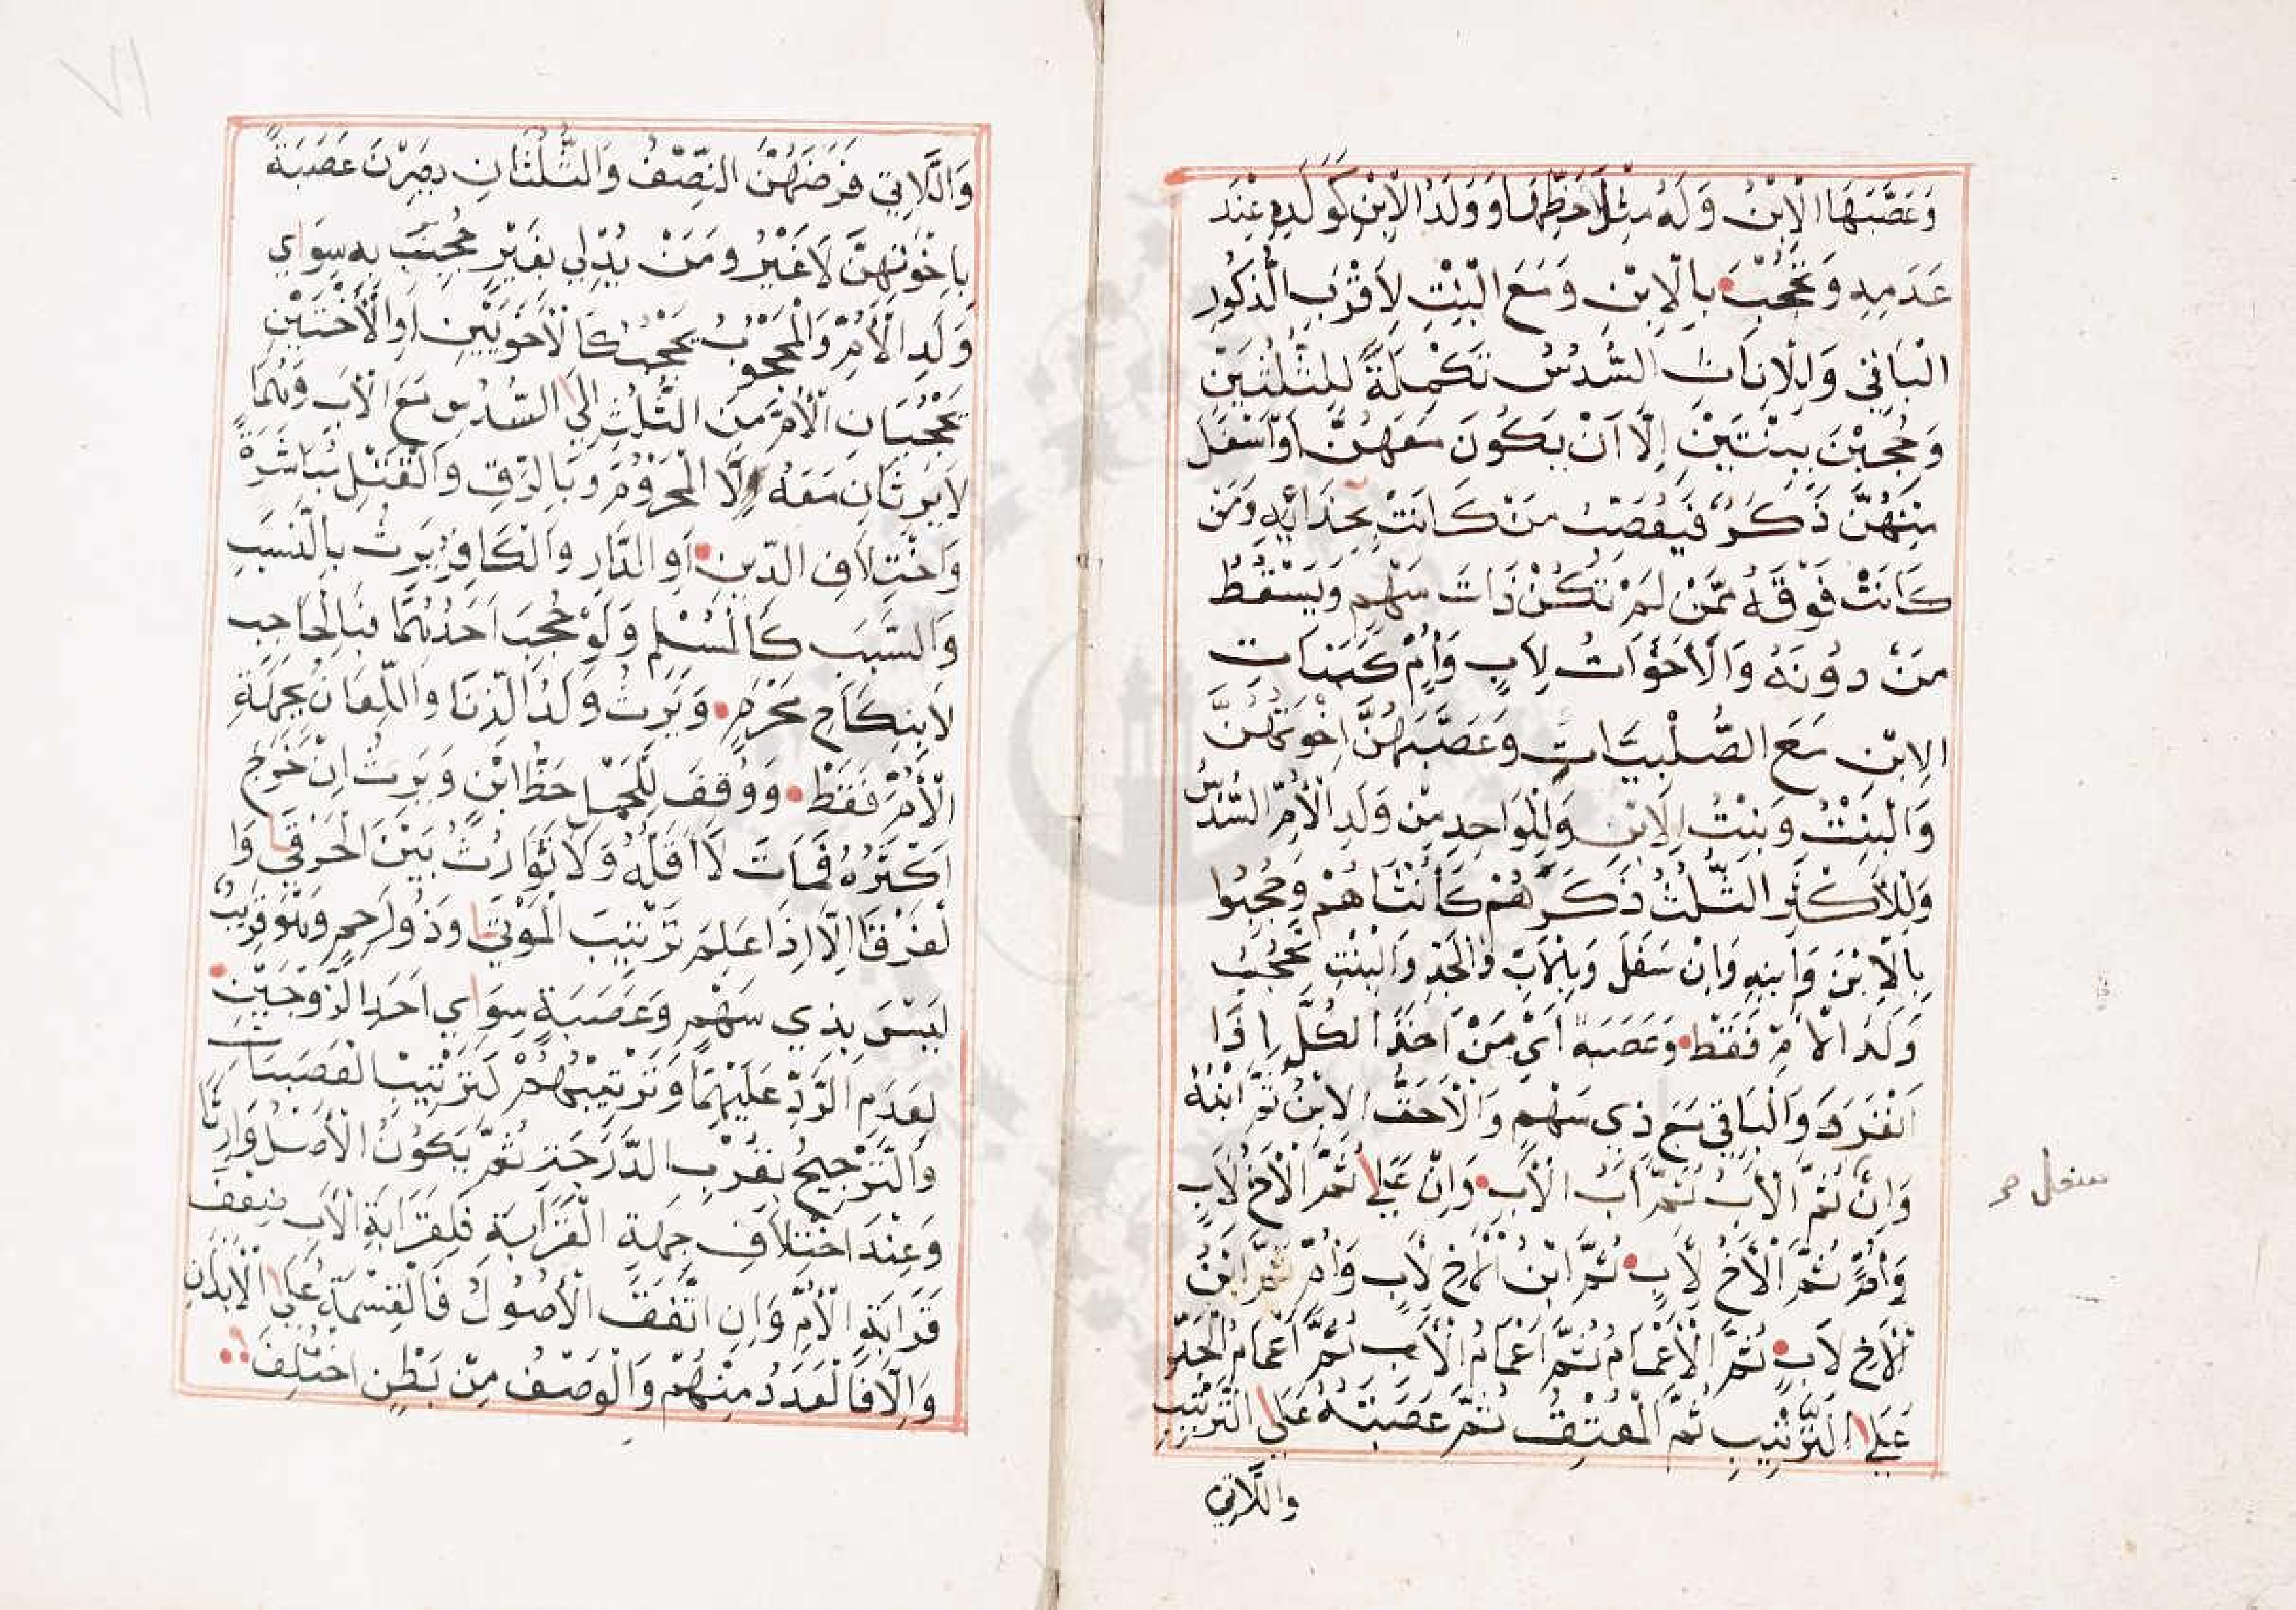 وَعَصَّبَهَا الْاِبْنُ وَلَهُ مِثْلَا حَظِّهَا وَوَلَدُ الْاِبْنِ كَوَلَدِهِ عِنْدَ
عَدَمِهِ وَتُحْجَبُ بِالْاِبْنِ وَمَعَ الْبِنْتِ لِاَقْرَبِ الذُّكُورِ
الْبَاقِي وَلِلْاِنَاثِ السُّدُسُ تَكْمِلَةً لِلثُّلُثَيْنِ
وَحُجِبْنَ بِبِنْتَيْنِ اِلَّا اَنْ يَكُونَ مَعَهُنَّ اَوْ اَسْفَلَ
مِنْهُنَّ ذَكَرٌ فَيُعَصِّبُ مَنْ كَانَتْ بِحِذَائِهِ وَمَنْ
كَانَتْ فَوْقَهُ مِمَّنْ لَمْ تَكُنْ ذَاتَ سَهْمٍ وَيَسْقُطُ
مَنْ دُونَهُ وَالْاَخَوَاتُ لِاَبٍ وَاُمٍّ كَبَنَاتِ
الِابْنِ مَعَ الصُّلْبِيَّاتِ وَعَصَّبَهُنَّ اِخْوَتُهُنَّ
وَالْبِنْتُ وَبِنْتُ الِابْنِ وَلِلْوَاحِدِ مِنْ وَلَدِ الْاُمِّ السُّدُسُ
وَلِلْاَكْثَرِ الثُّلُثُ ذَكَرُهُمْ كَأُنْثَاهُمْ وَحُجِبُوا
بِالْاِبْنِ وَابْنِهِ وَاِنْ سَفَلَ وَبِالْاَبِ وَالْجَدِّ وَالْبِنْتِ تَحْجُبُ
وَلَدَ الْاُمِّ فَقَطْ وَعَصَبَةٌ اَيْ مَنْ اَخَذَ الْكُلَّ اِذَا
انْفَرَدَ وَالْبَاقِي مَعَ ذِي سَهْمٍ وَالْاَحَقُّ الِابْنُ ثُمَّ ابْنُهُ
وَاِنْ ثُمَّ الْاَبُ ثُمَّ اَبُ الْاَبِ وَاِنْ عَلَا ثُمَّ الْاَخُ لِاَبٍ
سفل صح
وَاُمٍّ ثُمَّ الْاَخُ لِاَبٍ ثُمَّ ابْنُ الْاَخِ لِاَبٍ وَاُمٍّ ثُمَّ ابْنُ
الْاَخِ لِاَبٍ ثُمَّ الْاَعْمَامُ ثُمَّ اَعْمَامُ الْاَبِ ثُمَّ اَعْمَامُ الْجَدِّ
عَلَى التَّرْتِيبِ ثُمَّ الْمُعْتِقُ ثُمَّ عَصَبَتُهُ عَلَى التَّرْتِيبِ
وَاللَّاتِي
٧١
وَاللَّاتِي فَرْضُهُنَّ النِّصْفُ وَالثُّلُثَانِ يَصِرْنَ عَصَبَةً
بِاِخْوَتِهِنَّ لَا غَيْرُ وَمَنْ يُدْلِي بِغَيْرٍ حُجِبَ بِهِ سِوَاي
وَلَدِ الْاُمِّ وَالْمَحْجُوبُ يَحْجُبُ كَالْاَخَوَيْنِ اَوِ الْاُخْتَيْنِ
يَحْجُبَانِ الْاُمَّ مِنَ الثُّلُثِ اِلَى السُّدُسِ مَعَ الْاَبِ وَهُمَا
لَا يَرِثَانِ مَعَهُ اِلَّا الْمَحْرُومُ وَبِالرِّقِ وَالْقَتْلِ مُبَاشَرَةً
وَاخْتِلَافِ الدِّينِ اَوِ الدَّارِ وَالْكَافِرُ يَرِثُ بِالنَّسَبِ
وَالسَّبَبِ كَالْمُسْلِمِ وَلَوْ حَجَبَ اَحَدُهُمَا فَبِالْحَاجِبِ
لَا بِنِكَاحِ مَحْرَمٍ وَيَرِثُ وَلَدُ الزِّنَا وَاللِّعَانِ بِجِهَةِ
الْاُمِّ فَقَطْ وَوُقِفَ لِلْحَمْلِ حَظُّ ابْنٍ وَيَرِثُ اِنْ خَرَجَ
اَكْثَرُهُ فَمَاتَ لَا اَقَلُّهُ وَلَا تَوَارُثَ بَيْنَ الْحَرْقَى وَا
لْغَرْقَا اِلَّا اِذَا عَلِمَ تَرْتِيبَ الْمَوْتَى وَذُو رَحِمٍ وَهُوَ قَرِيبٌ
لَيْسَ بِذِي سَهْمٍ وَعَصَبَةٍ سِوَاي اَحَدِ الزَّوْجَيْنِ
لِعَدَمِ الرَّدِّ عَلَيْهِمَا وَتَرْتِيبُهُمْ كَتَرْتِيبِ الْعَصَبَاتِ
وَالتَّرْجِيحُ بِقُرْبِ الدَّرَجَةِ ثُمَّ يَكُونُ الْاَصْلُ وَارِثًا
وَعِنْدَ اخْتِلَافِ جِهَةِ الْقَرَابَةِ فَلِقَرَابَةِ الْاَبِ ضِعْفُ
قَرَابَةِ الْاُمِّ وَاِنِ اتَّفَقَ الْاُصُولُ فَالْقِسْمَةُ عَلَى الْاَبْدَانِ
وَاِلَّا فَالْعَدَدُ مِنْهُمْ وَالْوَصْفُ مِنْ بَطْنٍ اخْتُلِفَ